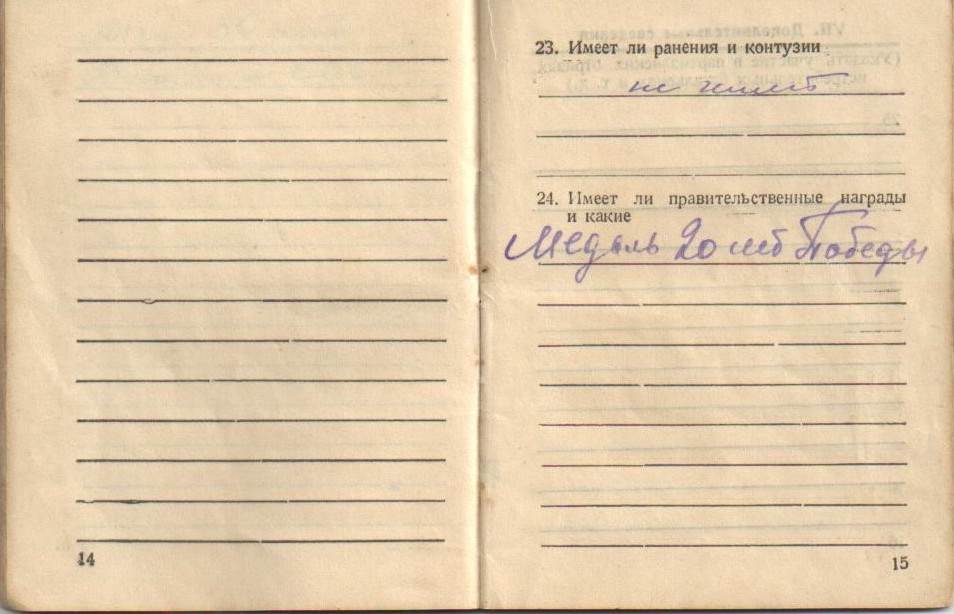 14
23. Имеет ли ранения и контузии
не имеет
24. Имеет ли правительственные награды
и какие
Медаль 20 лет Победы
15